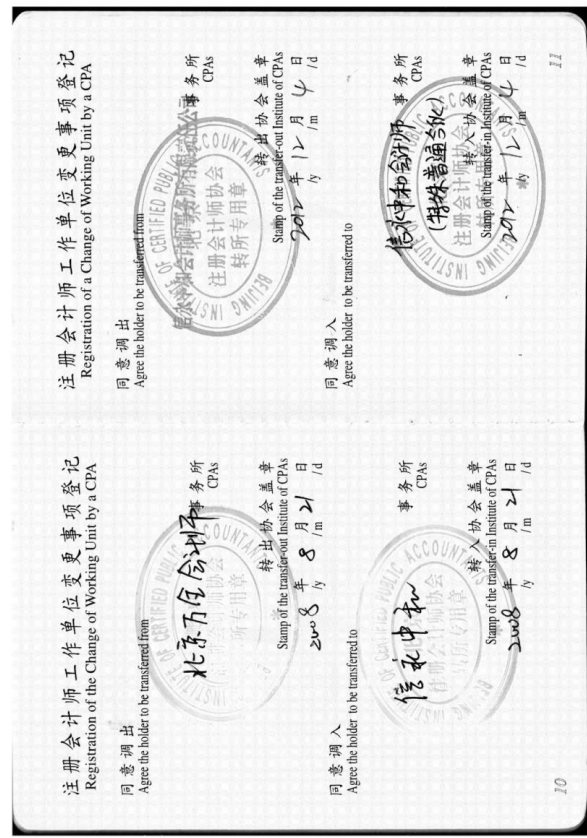 注册会计师工作单位变更事项登记
Registration of the Change of Working Unit by a CPA
同意调出
Agree the holder to be transferred from
北京万全会计师 事务所
CPAs
转出协会盖章
Stamp of the transfer-out Institute of CPAs
2008 年 8 月 21 日
/y /m /d
同意调入
Agree the holder to be transferred to
信永中和 事务所
CPAs
转入协会盖章
Stamp of the transfer-in Institute of CPAs
2008 年 8 月 21 日
/y /m /d
10
注册会计师工作单位变更事项登记
Registration of a Change of Working Unit by a CPA
同意调出
Agree the holder to be transferred from
信永中和会计师事务所有限责任公司 事务所
CPAs
BEIJING INSTITUTE OF CERTIFIED PUBLIC ACCOUNTANTS
北京
注册会计师协会
转所专用章
转出协会盖章
Stamp of the transfer-out Institute of CPAs
2012 年 12 月 4 日
/y /m /d
同意调入
Agree the holder to be transferred to
信永中和会计师 事务所
(特殊普通合伙) CPAs
注册会计师协会
转所专用章
转入协会盖章
Stamp of the transfer-in Institute of CPAs
2012 年 12 月 4 日
/y /m /d
11